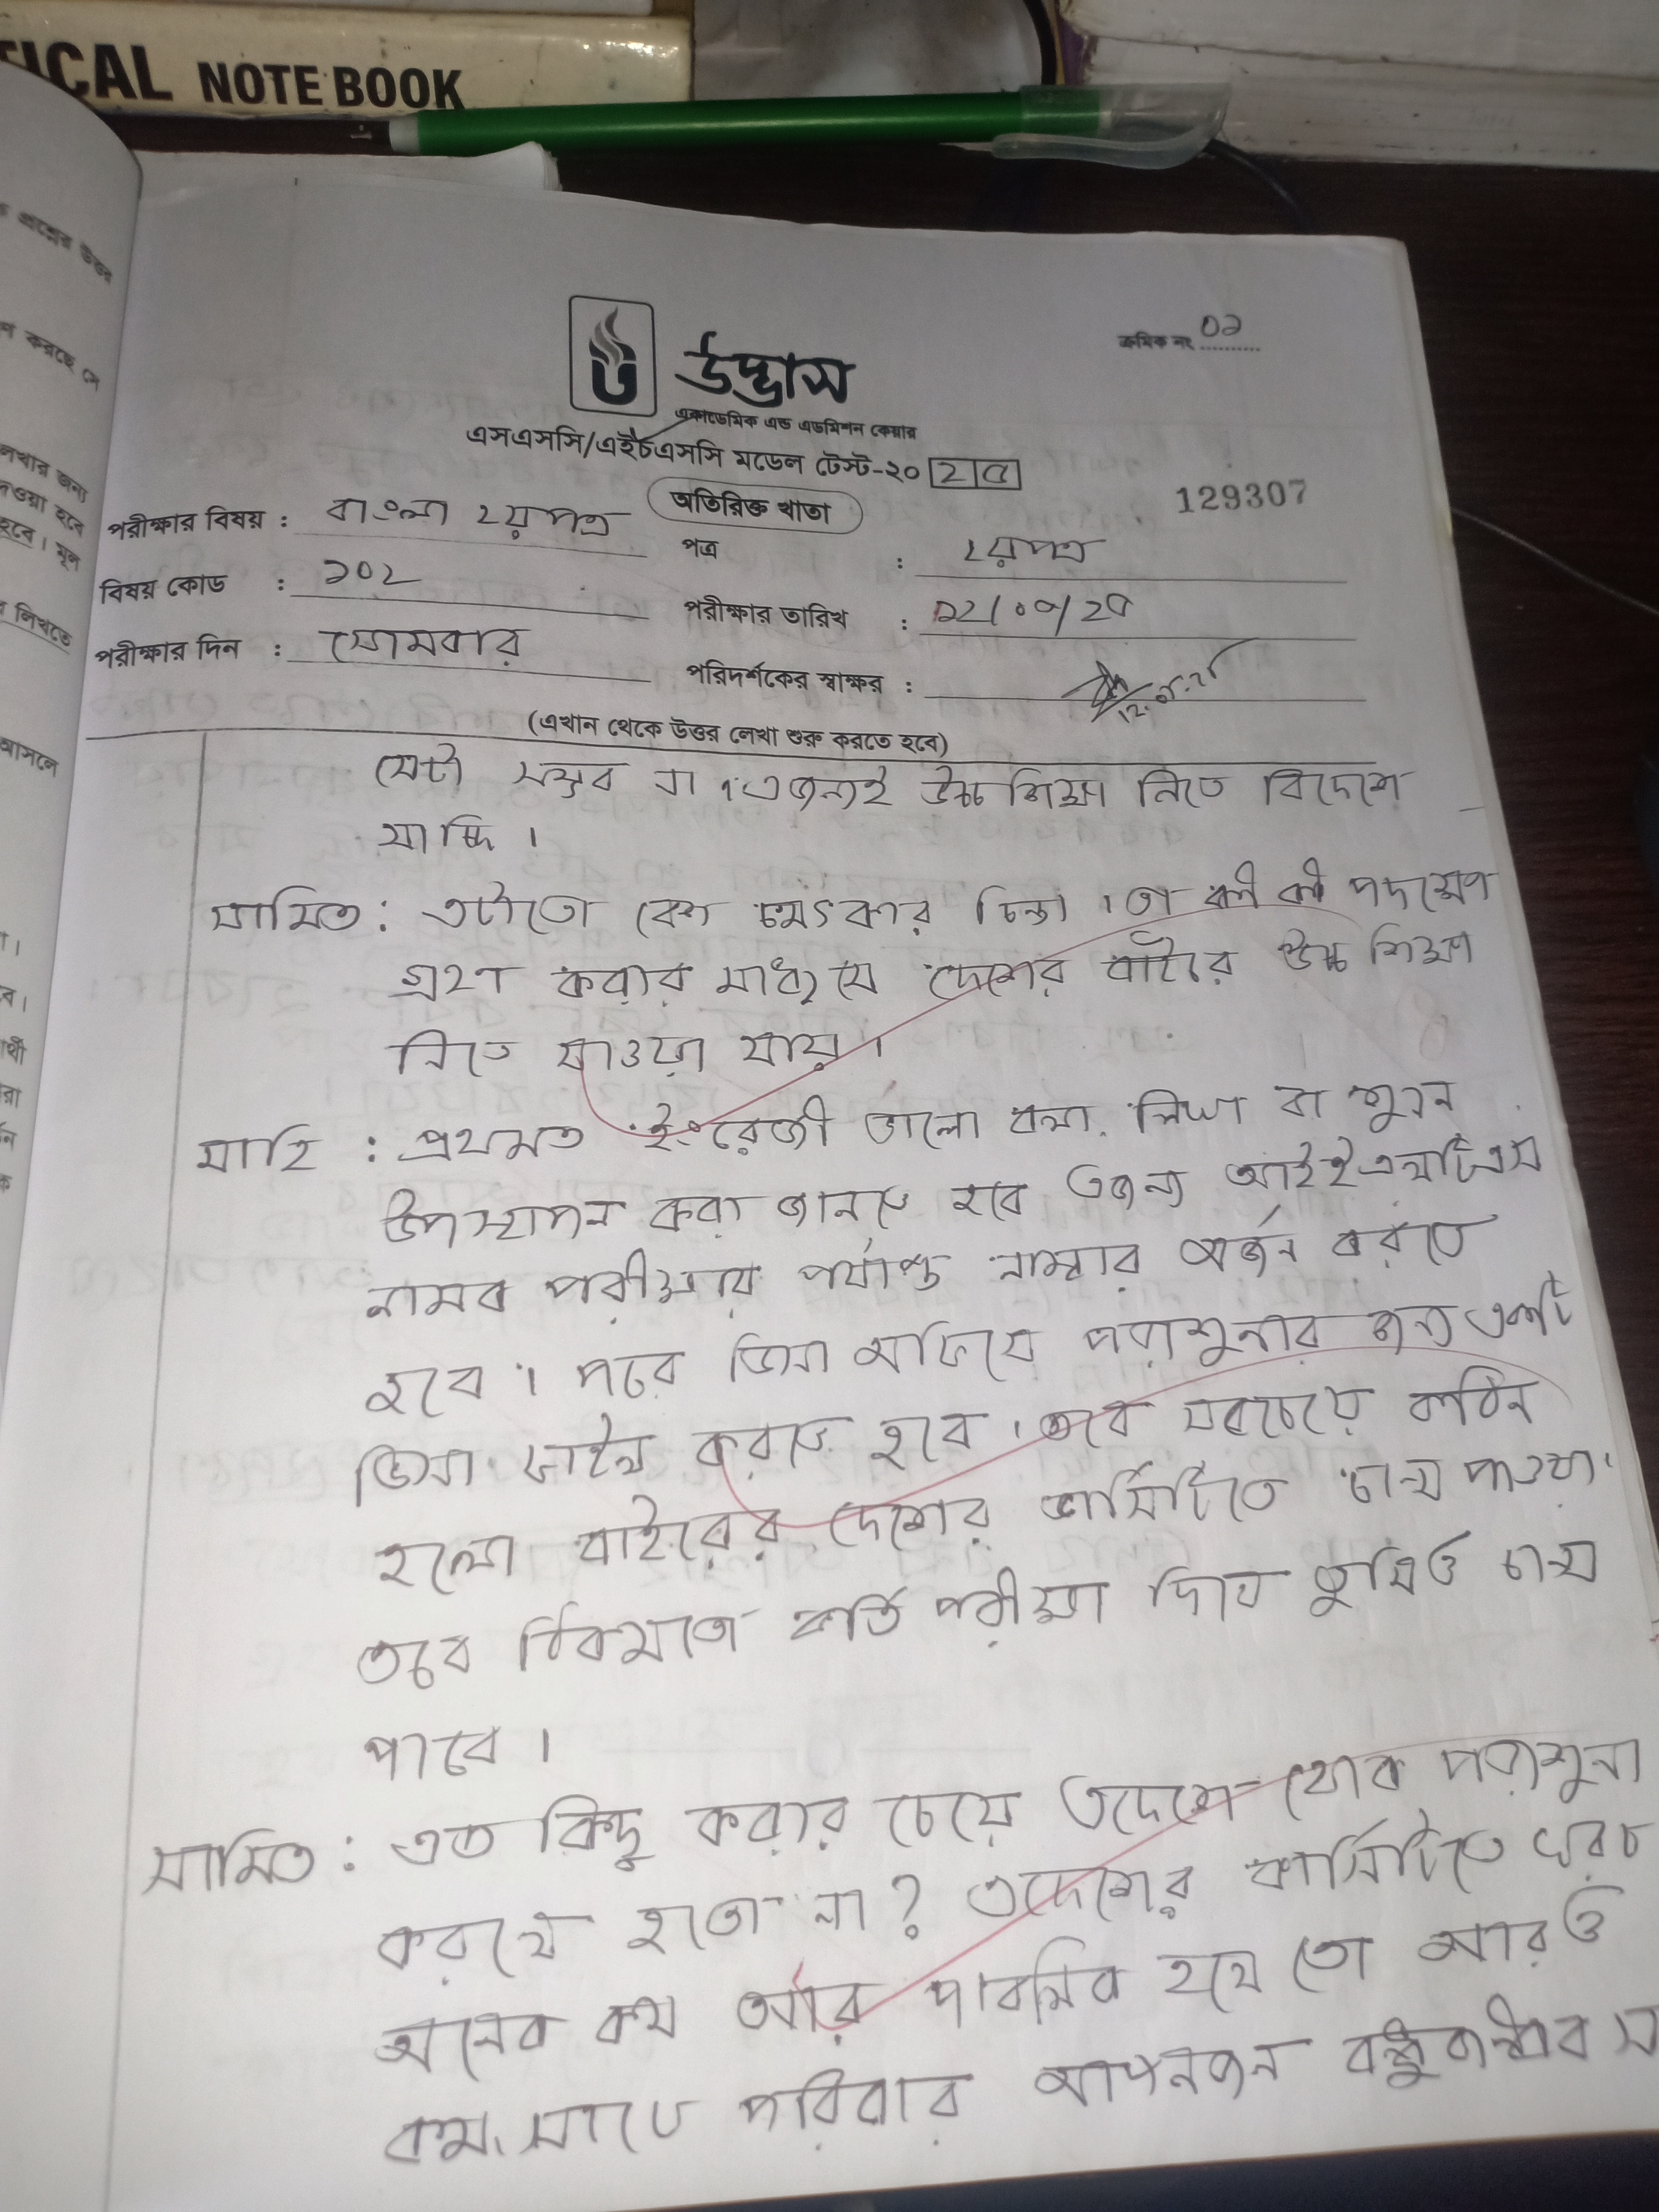 TICAL NOTE BOOK
প্রশ্নের উত্তর
করছে
লেখার জন্য
দেওয়া হবে
হবে। মূল
লিখতে
আসলে
ক্রমিক নং 02
উদ্ভাস
একাডেমিক এন্ড এডমিশন কেয়ার
এসএসসি/এইচএসসি মডেল টেস্ট-২০ ২৫
অতিরিক্ত খাতা
129307
পরীক্ষার বিষয় : বাংলা ২য় পত্র
পত্র : ২য় পত্র
বিষয় কোড : ১০২
পরীক্ষার তারিখ : ১২/০৫/২৫
পরীক্ষার দিন : সোমবার
পরিদর্শকের স্বাক্ষর : 12.05.25
(এখান থেকে উত্তর লেখা শুরু করতে হবে)
সেটা সম্ভব না। এজন্যই উচ্চ শিক্ষা নিতে বিদেশে
যাচ্ছি।
সামিত : এটাতো বেশ চমৎকার চিন্তা। তা কী কী পদক্ষেপ
গ্রহণ করার মাধ্যমে দেশের বাইরে উচ্চ শিক্ষা
নিতে যাওয়া যায়।
মাহি : প্রথমত ইংরেজী ভালো বলা, লিখা বা শুনে
উপস্থাপন করা জানতে হবে এজন্য আইইএলটিএস
নামক পরীক্ষায় পর্যাপ্ত নাম্বার অর্জন করতে
হবে। পরে ভিসা অফিসে পরাশুনার জন্য একটি
ভিসা করতে হবে। তবে সবচেয়ে কঠিন
হলো বাইরের দেশের ভার্সিটিতে চান্স পাওয়া।
তবে ঠিকমতো ভর্তি পরীক্ষা দিলে তুমিও চান্স
পাবে।
সামিত : এত কিছু করার চেয়ে এদেশে থেকে পরাশুনা
করলে হতো না? এদেশের ভার্সিটিতে খরচ
অনেক কম আর পাবলিক হলে তো আরও
কম, সাথে পরিবার আপনজন বন্ধুবান্ধব